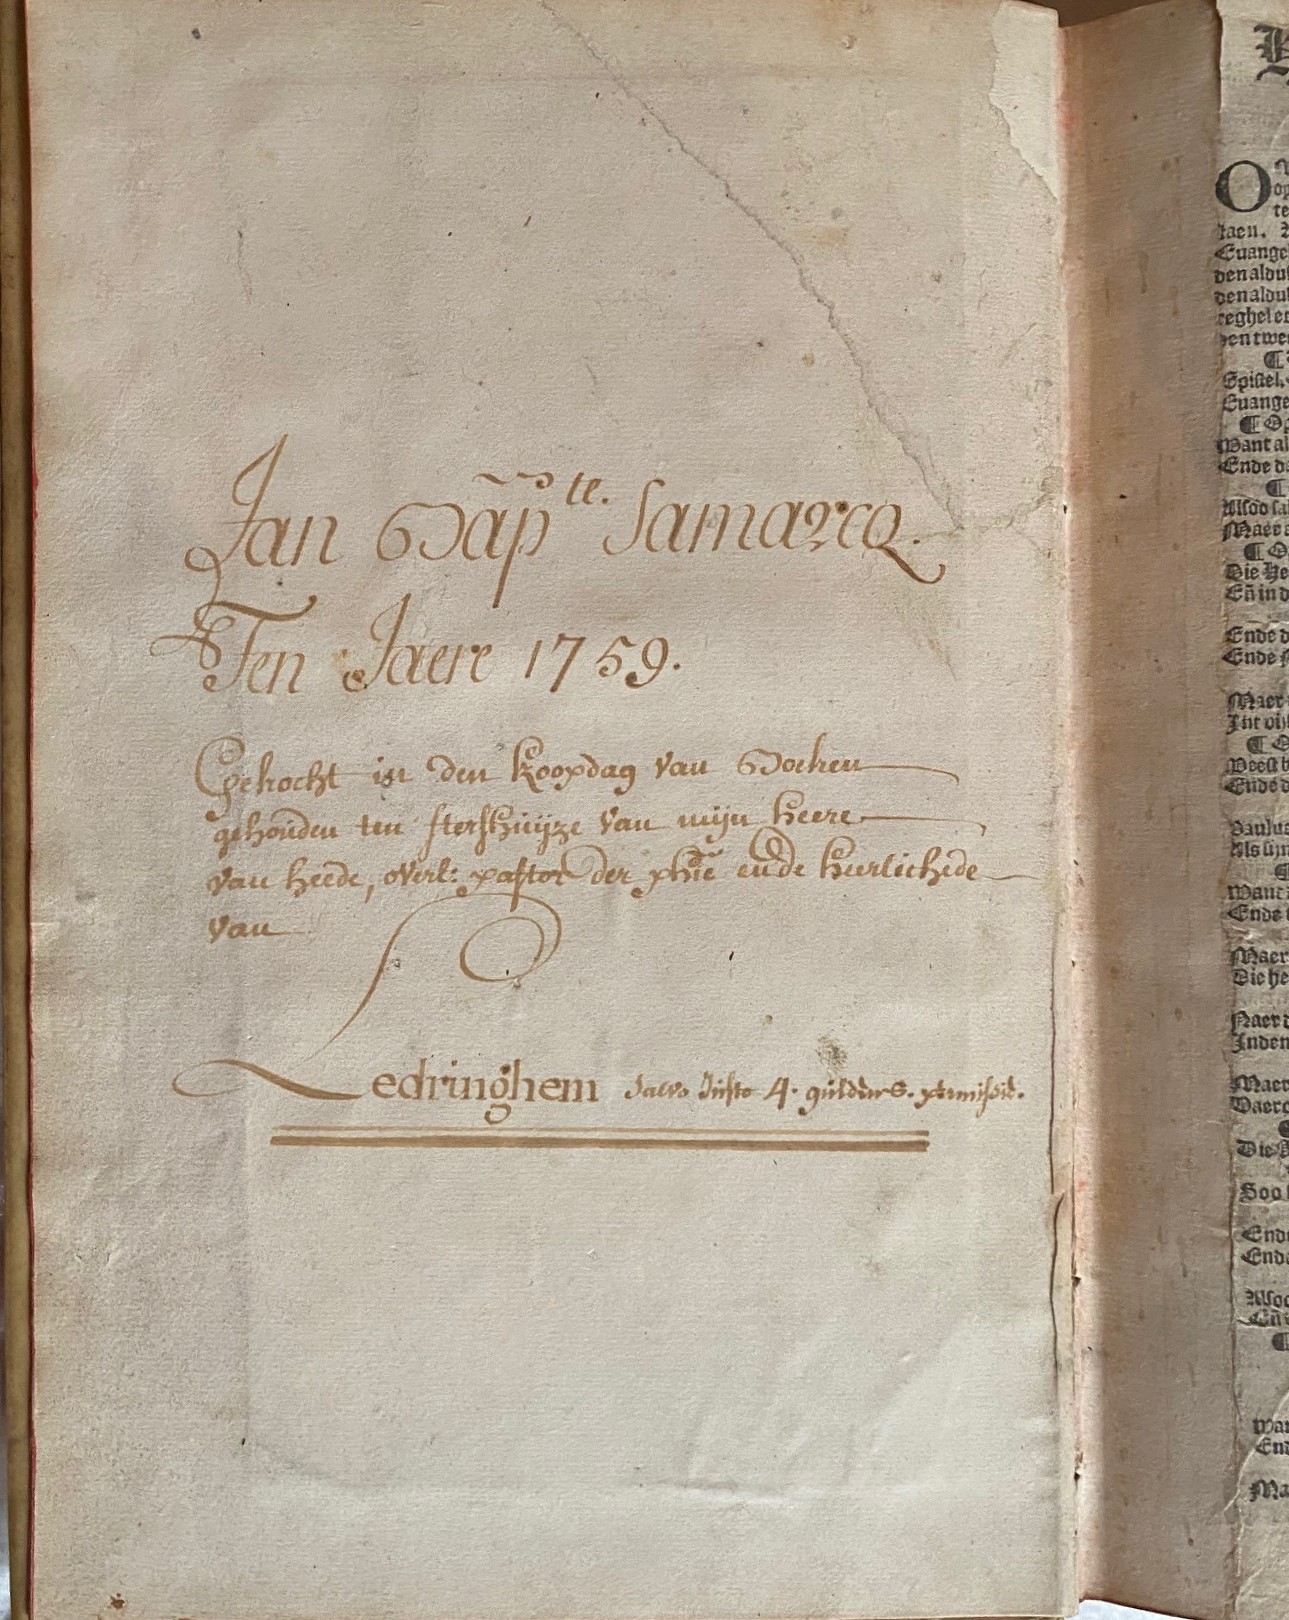 Jan Bap.te Samarcq.
Ten Jaere 1759.
Gekocht in den koopdag van Boeken
gehouden ten sterfhuijze van mijn heere
van heede, overl: pastor der phie ende heerlichede
van
Ledringhem salvo Justo 4. guldens. permissie.
O
op
te
taen.
Euange
den aldus
den aldus
reghel en
den twee
¶
Epistel.
Euange
¶ Op
Want al
Ende d
¶
Maer
¶ O
Die He
Eñ in d
Ende d
Ende
Maer
¶ O
Ende d
Paulus
Want
Ende
Maer
Die he
Naer d
Inden
Maer
Daer
Die
Soo
Ende
Ende
Eñ
¶
Wan
End
Ma